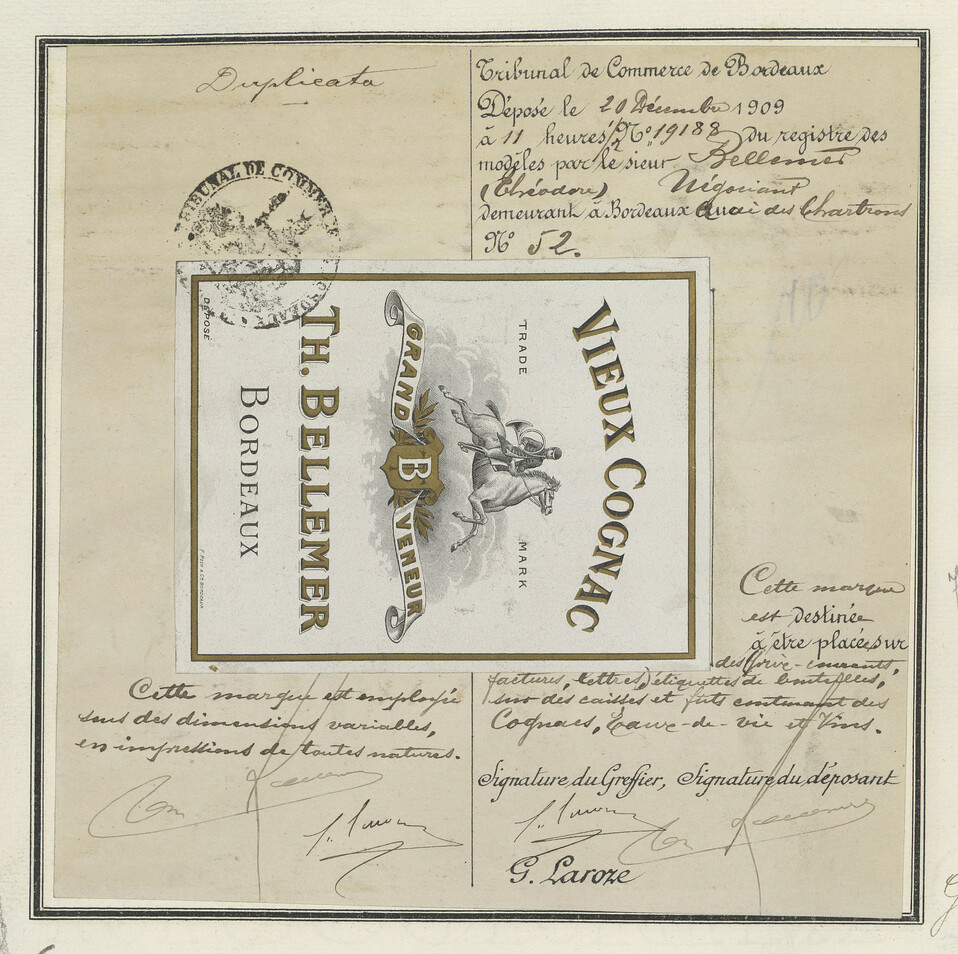 Duplicata
Tribunal de Commerce de Bordeaux
Déposé le 20 Décembre 1909
à 11 heures 1/2 N° 19188 du registre des
modèles par le sieur Bellemer
(Théodore) Négociant
demeurant à Bordeaux Quai des Chartrons
N° 52.
TRIBUNAL DE COMMERCE
BORDEAUX
VIEUX COGNAC
TRADE MARK
GRAND B VENEUR
TH. BELLEMER
BORDEAUX
DÉPOSÉ
Cette marque
est destinée
à être placée sur
des prix-courants,
factures, lettres, étiquettes de bouteilles,
sur des caisses et fûts contenant des
Cognacs, Eaux-de-vie et Vins.
Cette marque est employée
sous des dimensions variables,
en impressions de toutes natures.
Signature du Greffier, Signature du déposant
G. Laroze